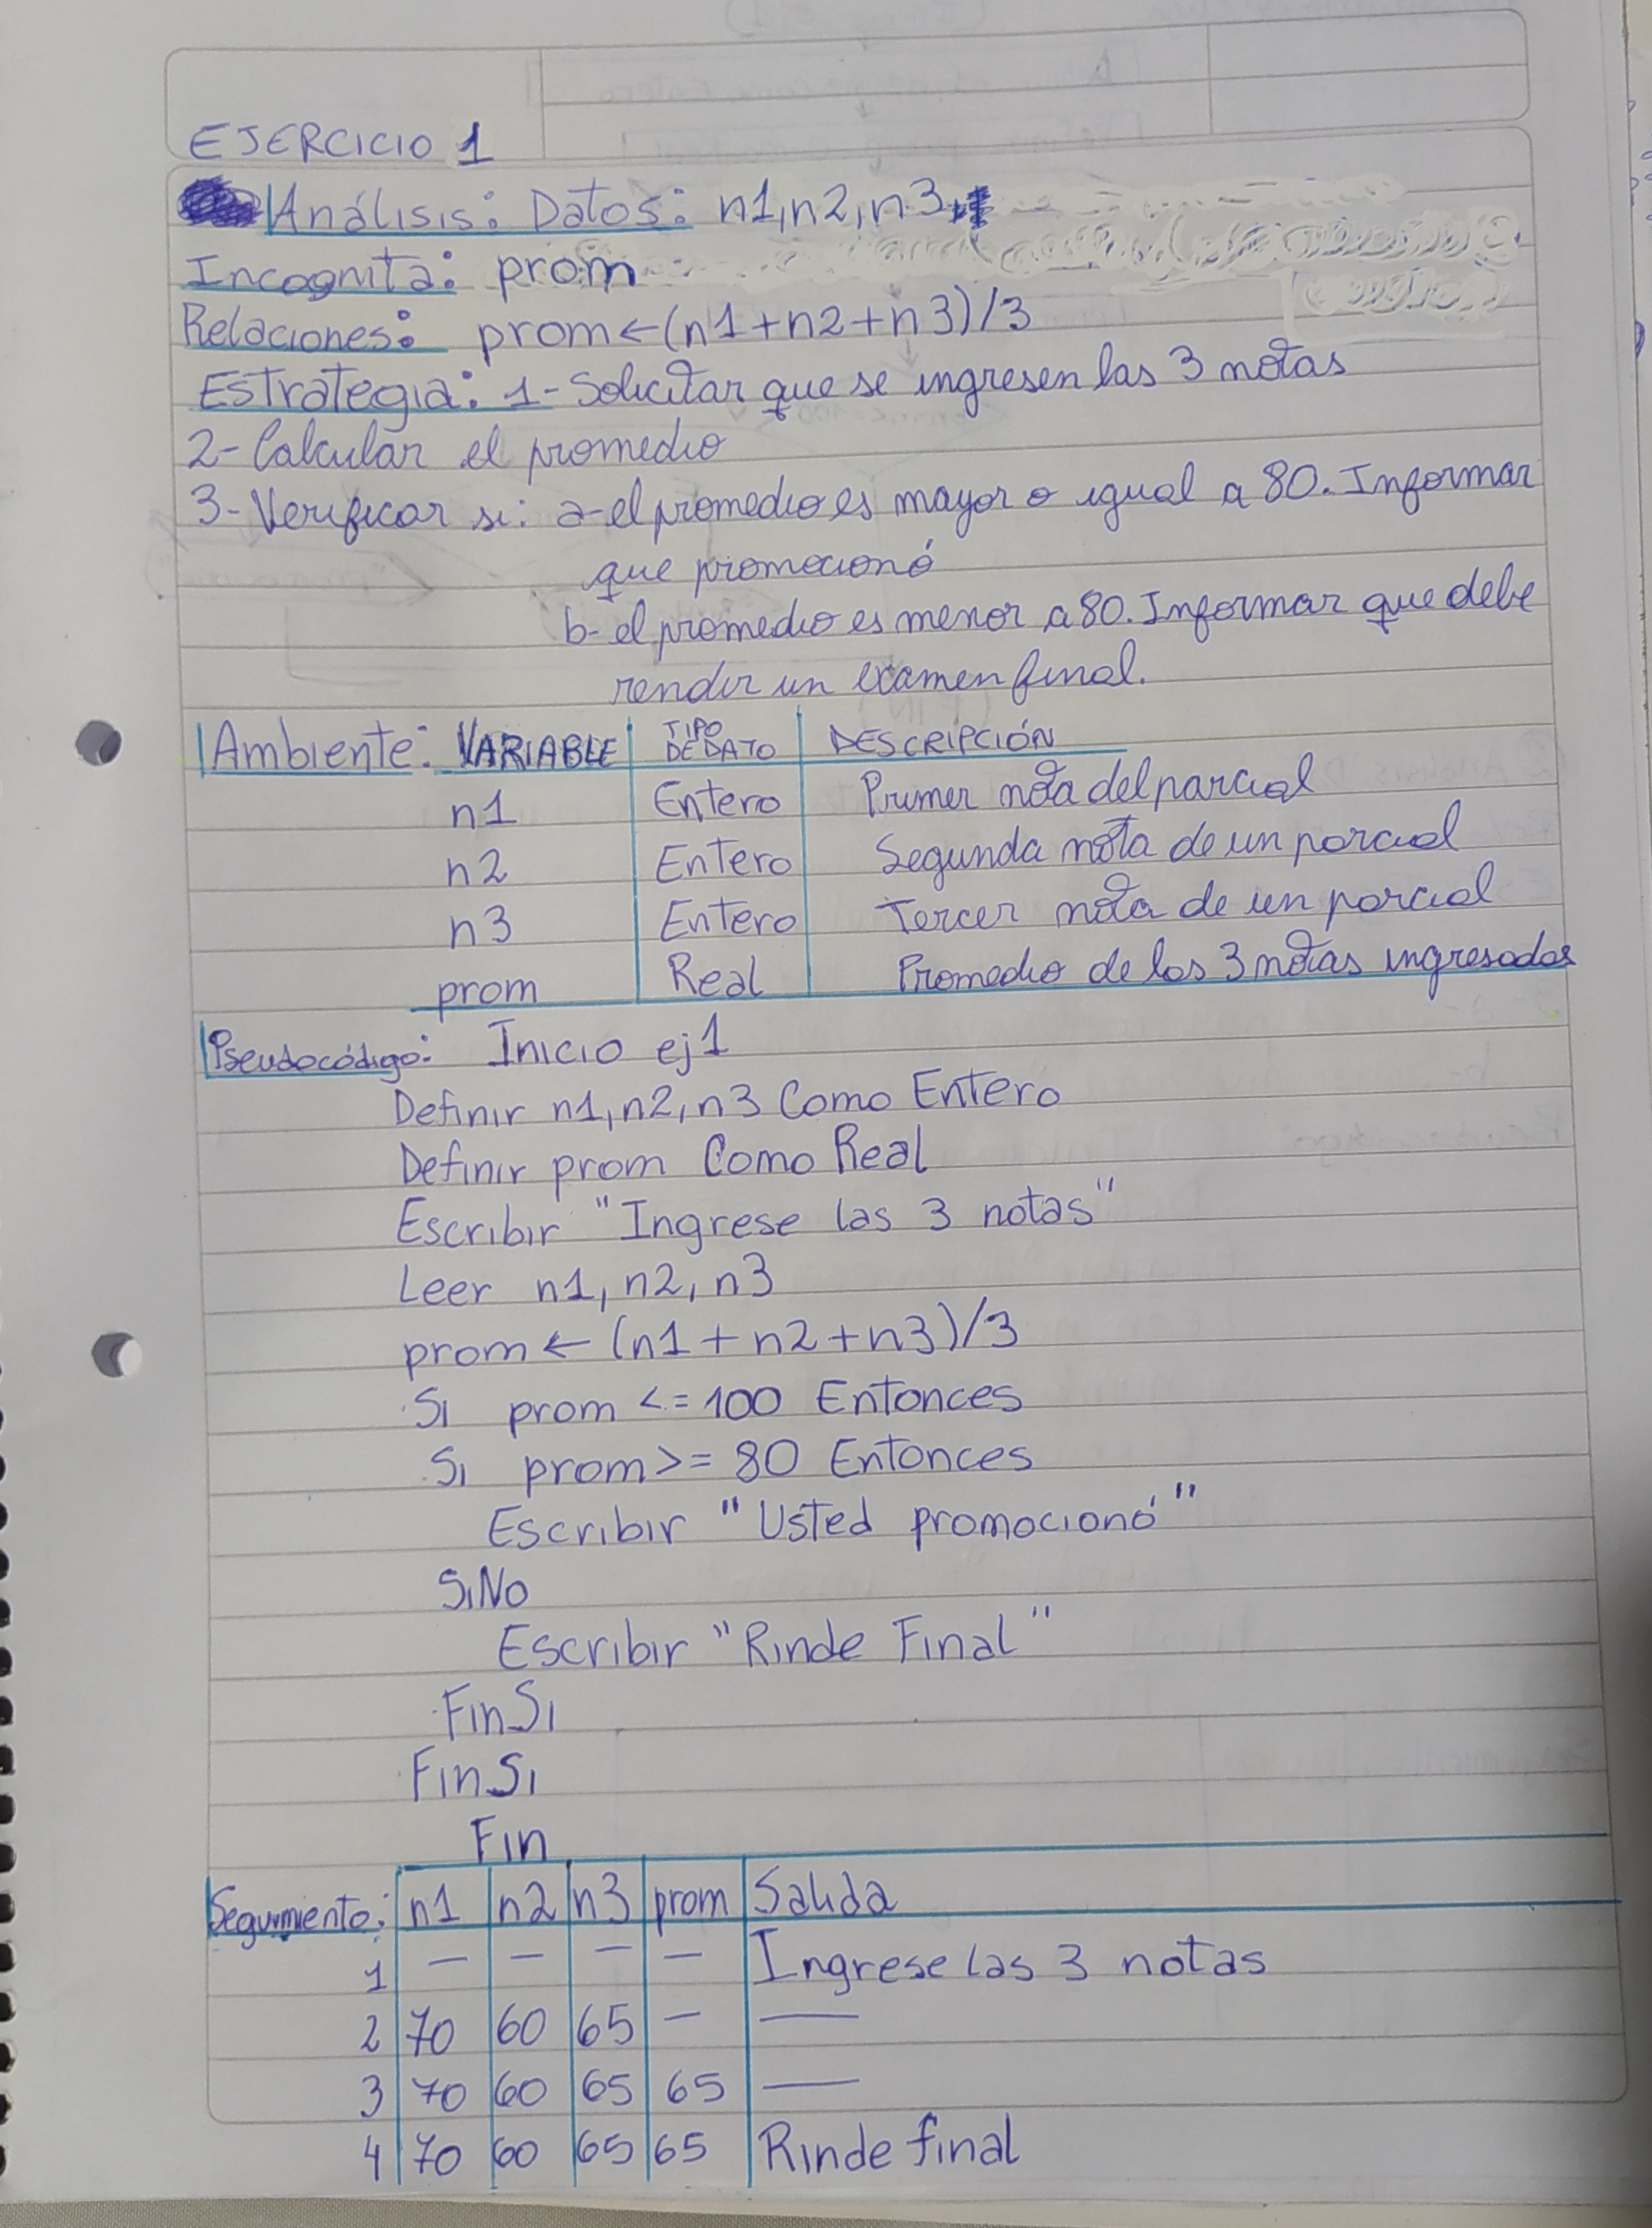 EJERCICIO 1
Análisis: Datos: n1,n2,n3
Incognita: prom
Relaciones: prom←(n1+n2+n3)/3
Estrategia: 1-Solicitar que se ingresen las 3 notas
2-Calcular el promedio
3-Verificar si: a-el promedio es mayor o igual a 80. Informar
que promocionó
b-el promedio es menor a 80. Informar que debe
rendir un examen final.
Ambiente: VARIABLE TIPO DE DATO DESCRIPCIÓN
n1 Entero Primer nota del parcial
n2 Entero Segunda nota de un parcial
n3 Entero Tercer nota de un parcial
prom Real Promedio de las 3 notas ingresadas
Pseudocódigo: Inicio ej1
Definir n1,n2,n3 Como Entero
Definir prom Como Real
Escribir "Ingrese las 3 notas"
Leer n1, n2, n3
prom ← (n1 + n2 + n3)/3
Si prom <= 100 Entonces
Si prom >= 80 Entonces
Escribir "Usted promocionó"
SiNo
Escribir "Rinde Final"
FinSi
FinSi
Fin
Seguimiento: n1 n2 n3 prom Salida
1 — — — — Ingrese las 3 notas
2 70 60 65 — —
3 70 60 65 65 —
4 70 60 65 65 Rinde final